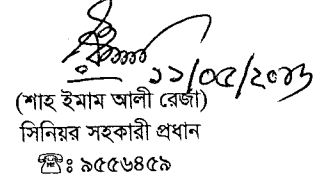 ১১/০৫/২০১৬
(শাহ ইমাম আলী রেজা)
সিনিয়র সহকারী প্রধান
☎ঃ ৯৫৫৬৪৫৯